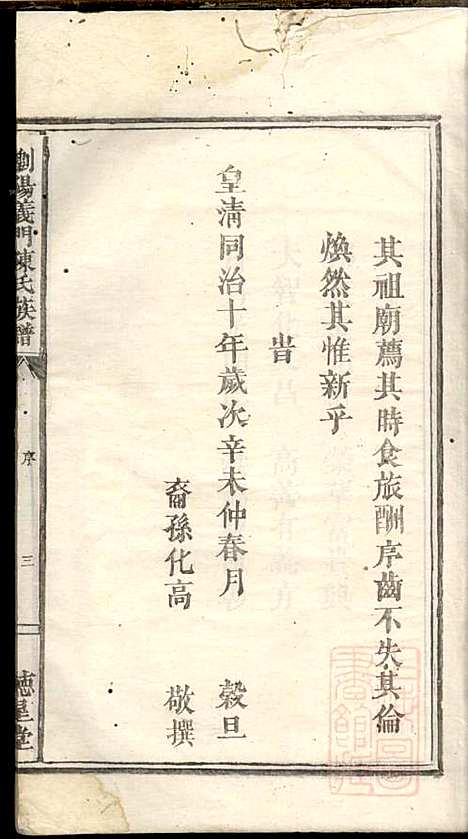 其祖廟薦其時食旅酬序齒不失其倫
煥然其惟新乎
旹
皇清同治十年歲次辛未仲春月 榖旦
裔孫化高 敬撰
瀏陽義門陳氏族譜
序
三
德星堂